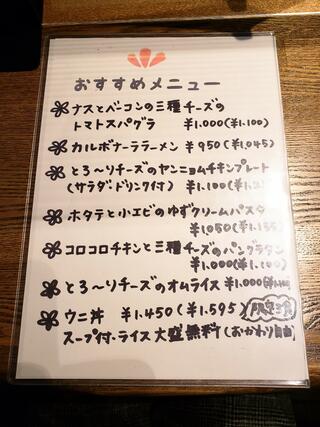 おすすめメニュー
ナスとベーコンの三種チーズの
トマトスパグラ ¥1.000(¥1.100)
カルボナーララーメン ¥950(¥1,045)
とろ〜りチーズのヤンニョムチキンプレート
(サラダ・ドリンク付) ¥1.100
ホタテと小エビのゆずクリームパスタ
¥1,050(¥1,155)
コロコロチキンと三種チーズのパングラタン
¥1.000(¥1,100)
とろ〜りチーズのオムライス ¥1.000
ウニ丼 ¥1.450(¥1.595) 限定3食
スープ付・ライス大盛無料(おかわり自由)